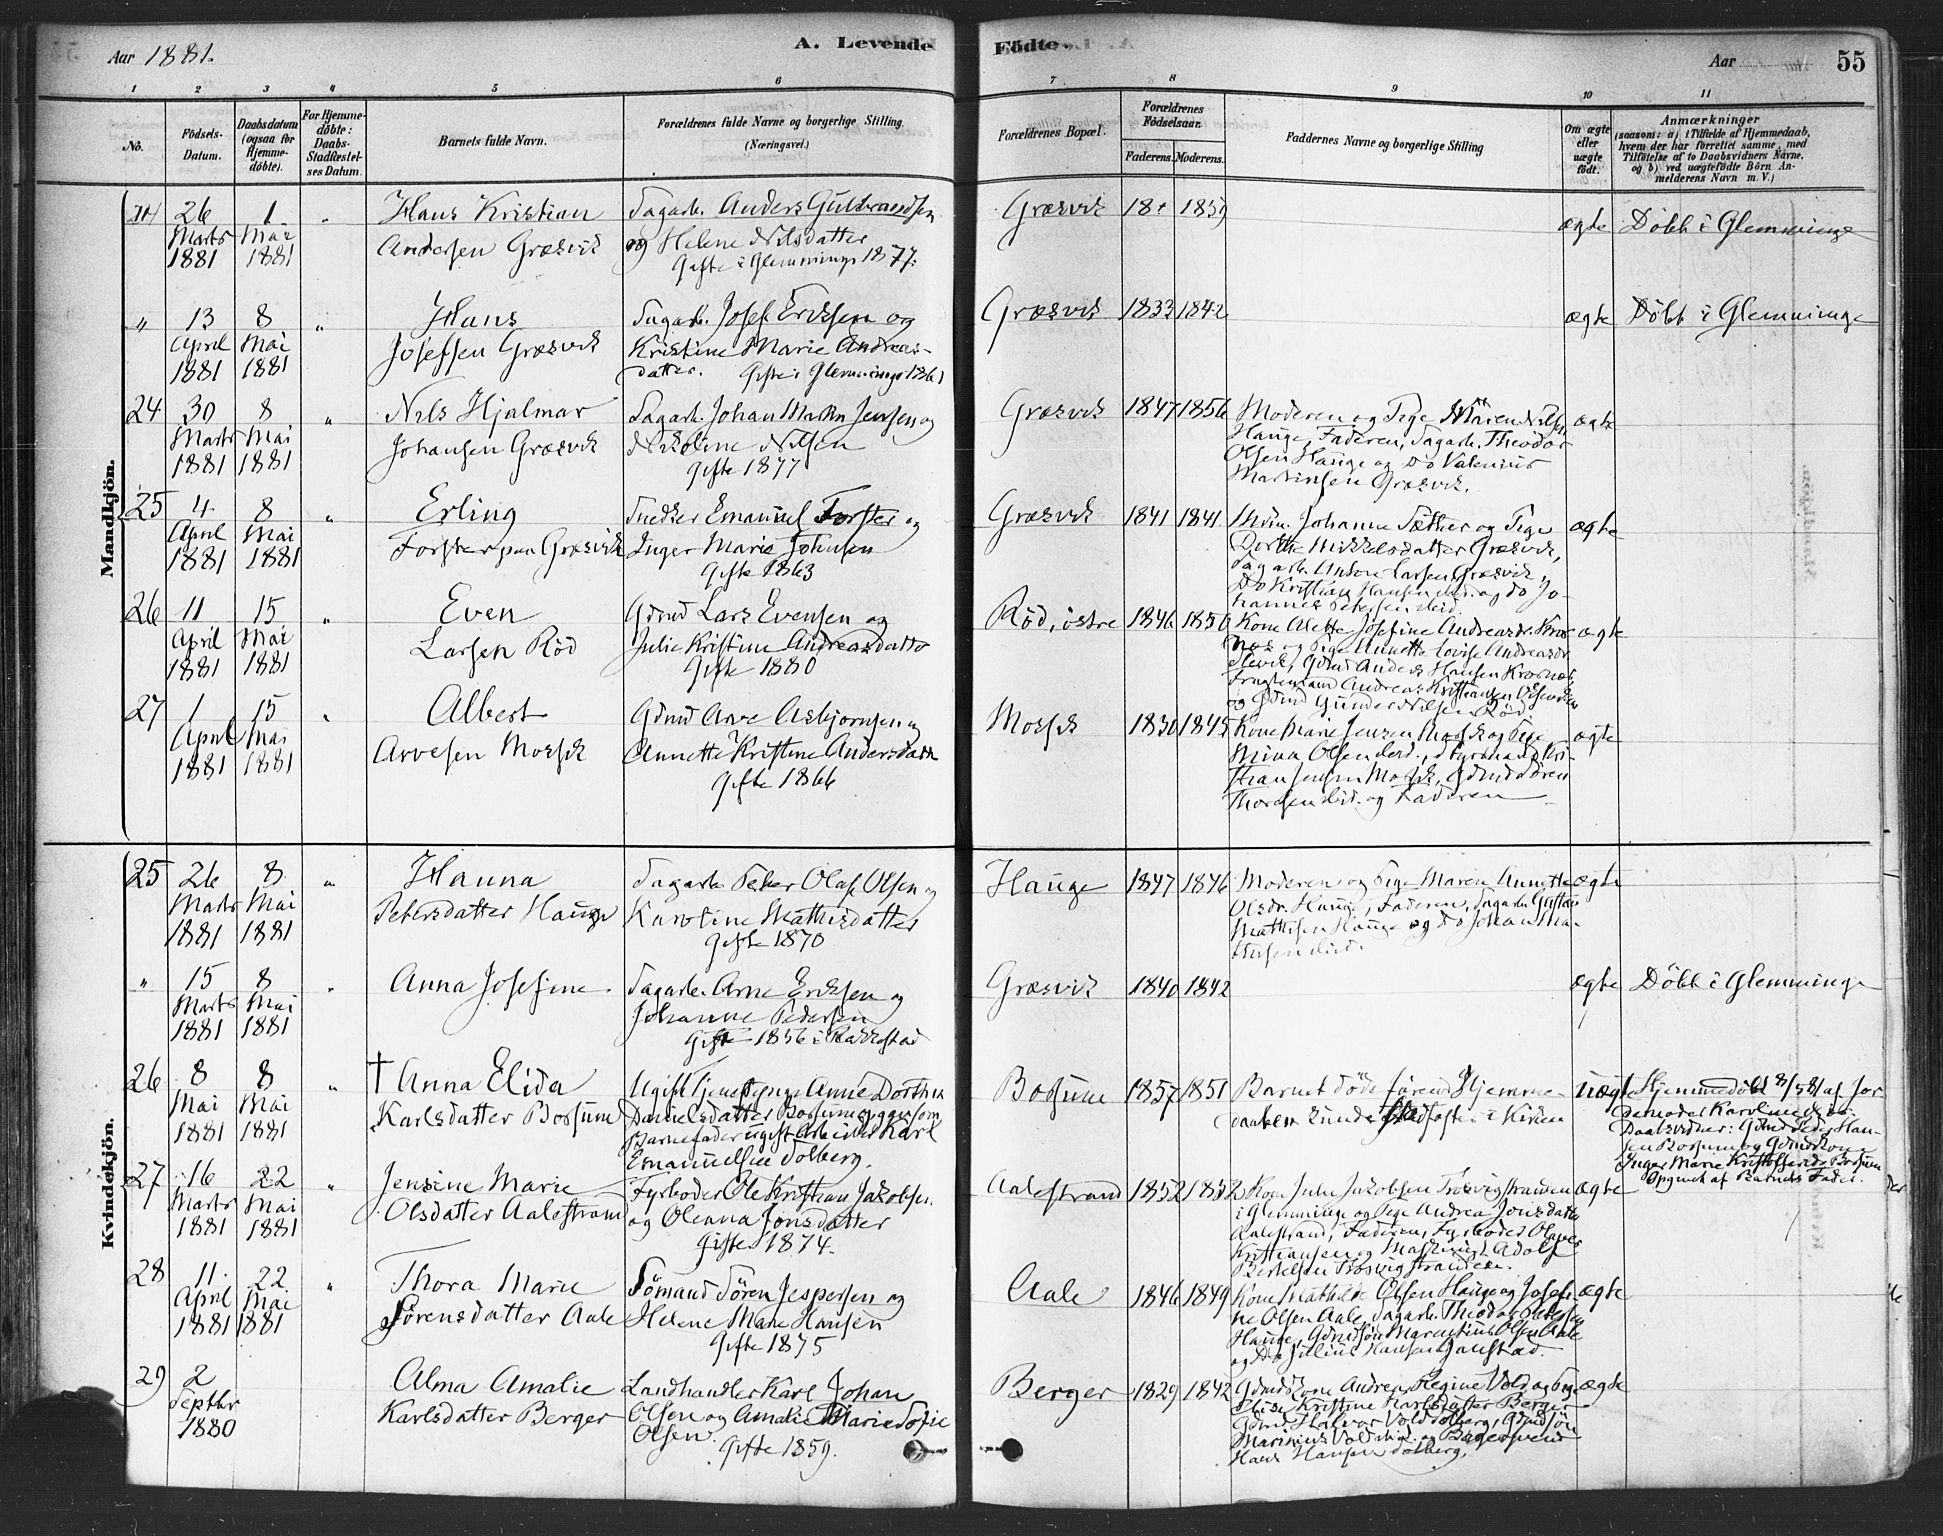 Aar 1881.
A. Levende
Födte.
Aar
55
1
2
3
4
5
6
7
8
9
10
11
No.
Födsels-
Datum.
Daabsdatum
(ogsaa for
Hjemme-
döbte).
For Hjemme-
döbte:
Daabs-
Stadfæstel-
ses Datum.
Barnets fulde Navn.
Forældrenes fulde Navne og borgerlige Stilling
(Næringsvei.)
Forældrenes Bopæl.
Forældrenes
Födselsaar.
Faderens.
Moderens.
Faddernes Navne og borgerlige Stilling
Om ægte
eller
uægte
födt.
Anmærkninger
(saasom: a) i Tilfælde af Hjemmedaab,
hvem der har forrettet samme, med
Tilföielse af to Daabsvidners Navne,
og b) ved uægtefödte Börn An-
melderens Navn m. V.)
Mandkjön.
26
Marts
1881
1
Mai
1881
"
Hans Kristian
Andersen Græsvik
Sagarb. Anders Gulbrandsen
og Helene Nilsdatter
Gifte i Glemminge 1877.
Græsvik
18
1859
ægte
Döbt i Glemminge
"
13
April
1881
8
Mai
1881
"
Hans
Josefsen Græsvik
Sagarb. Josef Eriksen og
Kristine Marie Andreas-
datter. Gifte i Glemminge 1861
Græsvik
1833
1842
ægte
Döbt i Glemminge
24
30
Marts
1881
8
Mai
1881
"
Nils Hjalmar
Johansen Græsvik
Sagarb. Johan Martin Jensen og
Nikoline Nilsen
Gifte 1877
Græsvik
1847
1856
Moderen og Pige Maren Nilsen
Hauge, Faderen, Sagarb. Theodor
Olsen Hauge og Do Valenius
Martinsen Græsvik.
ægte
25
4
April
1881
8
Mai
1881
"
Erling
Forster paa Græsvik
Snedker Emanuel Forster og
Inger Marie Johnsen
Gifte 1863
Græsvik
1841
1841
Johanne Sæther og Pige
Dorthe Mikkelsdatter Græsvik,
Sagarb. Anton Larsen Græsvik,
Do Kristian Hansen ibid. og Do Jo-
hannes Petersen ibid.
ægte
26
11
April
1881
15
Mai
1881
"
Even
Larsen Röd
Gdmd Lars Evensen og
Julie Kristine Andreasdatter
Gifte 1880
Röd, östre
1846
1850
Kone Alette Josefine Andreasdr.
og Pige Annette Lovise Andreasdr
Slevik, Gdmd Anders Hansen
Andreas Kristiansen
og Gdmd Gunder Nilsen Röd.
ægte
27
1
April
1881
15
Mai
1881
"
Albert
Arvesen Mossik
Gdmd Arve Asbjörnsen og
Annette Kristine Andersdatter
Gifte 1866
Mossik
1830
1845
Kone Marie Jensen Mossik og Pige
Mina Olsen ibid., Styrmand Kri-
stian Jensen Mossik, Gdmd Sören
Thoresen ibid. og Faderen
ægte
Kvindekjön.
25
26
Marts
1881
8
Mai
1881
"
Hanna
Petersdatter Hauge
Sagarb. Peter Olaf Olsen og
Karoline Mathisdatter
Gifte 1870
Hauge
1847
1846
Moderen og Pige Maren Annette
Olsdr. Hauge, Faderen, Sagarb. Gustav
Mathisen Hauge og Do Johan Ma-
thisen ibid.
ægte
"
15
Marts
1881
8
Mai
1881
"
Anna Josefine
Sagarb. Arne Eriksen og
Johanne Pedersen
Gifte 1856 i Rakkestad
Græsvik
1840
1842
ægte
Döbt i Glemminge
26
8
Mai
1881
8
Mai
1881
"
† Anna Elida
Karlsdatter Bossum
Ugift Tjenestepige Anne Dorthea
Danielsdatter Bossum opgav som
Barnefader ugift Arbeider Karl
Emanuelsen Dolberg.
Bossum
1857
1851
Barnet döde förend Hjemme-
daaben kunde stadfæstes i Kirken
uægte
Hjemmedöbt 8/5 81 af Jor
demoder Karoline
Daabsvidner: Gdmd Peder Han-
sen Bossum og Gdmdkone
Inger Marie Kristoffersdr Bossum
Opgivet af Barnets Fader.
27
16
Marts
1881
22
Mai
1881
"
Jensine Marie
Olsdatter Aalestrand
Fyrböder Ole Kristian Jakobsen
og Oleana Jonsdatter
Gifte 1874.
Aalestrand
1852
1852
Kone Julie Jakobsen Trosvigstranden
i Glemminge og Pige Andrea Jonsdatter
Aalestrand, Faderen, Fyrböder Oluves
Kristiansen og Adolf
Bertelsen Trosvigstranden.
ægte
28
11
April
1881
22
Mai
1881
"
Thora Marie
Sörensdatter Aale
Sömand Sören Jespersen og
Helene Marie Hansen
Gifte 1875
Aale
1846
1849
Kone Mathilde Olsen Hauge og Josefi-
ne Olsen Aale, Sagarb. Theodor Petersen
Hauge, Gdmdsön Marentius Olsen Aale
og Do Julius Hansen Gaustad.
ægte
29
2
Septbr
1880
Alma Amalie
Karlsdatter Berger
Landhandler Karl Johan
Olsen og Amalie Marie Sofie
Olsen. Gifte 1859.
Berger
1829
1842
Gdmdkone Andrea Regine Vold og Pige
Elise Kristine Karlsdatter Berger
Gdmd Halvor Vold Dolberg, Gdmdsön
Marinius Vold ibid. og Bagersvend
Hans Hansen Dolberg.
ægte